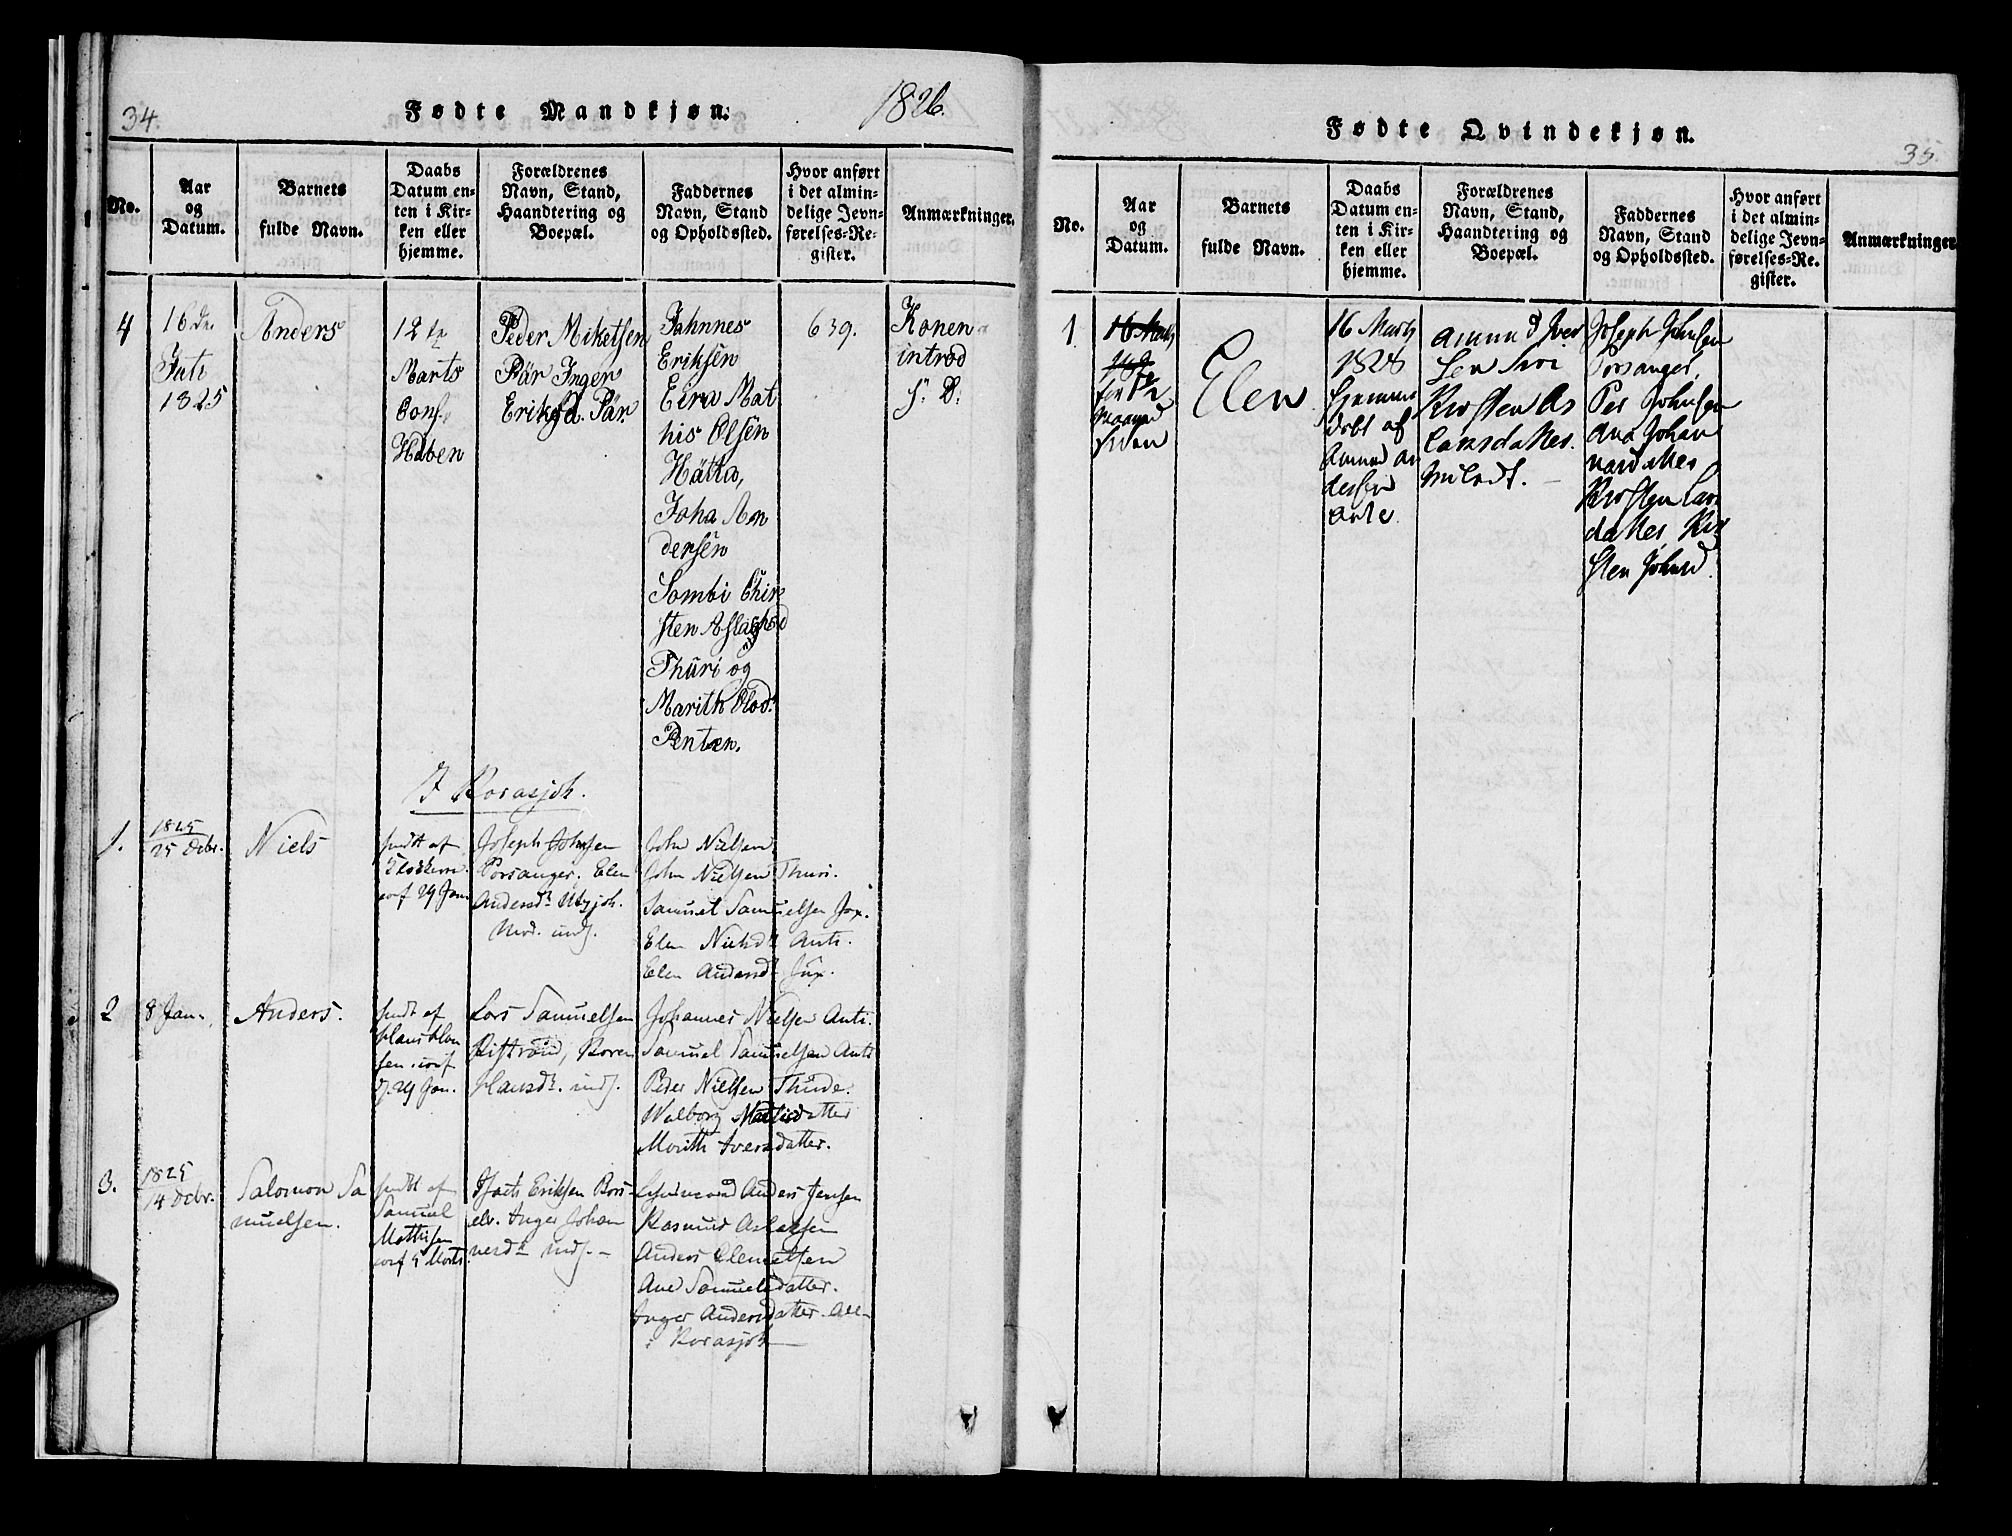 34.
Fødte Mandkjøn.
1826.
No.
Aar
og
Datum.
Barnets
fulde Navn.
Daabs
Datum en-
ten i Kir-
ken eller
hjemme.
Forældrenes
Navn, Stand,
Haandtering og
Boepæl.
Faddernes
Navn, Stand
og Opholdssted.
Hvor anført
i det almin-
delige Jevn-
førelses-Re-
gister.
Anmærkninger.
4
16 de
1825
Anders
12 te
Marts
Conf.
Peder Mikelsen
Pär Inger
Eriksd. Pär.
Johnnes
Eriksen
Eira Mat
his Olsen
Hätta,
Joha An
dersen
Sombi Chir
sten Aslags
Thuri og
Marith Olsd.
Pentæn.
639.
Konen
introd
s. D.
I Korasjok.
1.
1825
25 Debr.
Niels
hmdt af
conf 29 Jan
Joseph Johnsen
Porsanger. Elen
Andersd. Utzjok.
Nod. inds.
John Nielsen
John Nielsen Thuri.
Samuel Samuelsen Jox.
Elen Nielsd. Anti.
Elen Andersd. Jux.
2
8 Jan.
Anders.
hmdt af
Hans Han
sen. conf
d. 29 Jan.
Lars Samuelsen
Riström, Karen
Hansdt. inds.
Johannes Nielsen Anti.
Samuel Samuelsen Anti
Peder Nielsen Thude.
Walborg Matisdatter
Marith Iversdatter.
3.
1825
14 Debr.
Salomon Sa
muelsen.
hmdt af
Samuel
Mathisen
conf 5 Marts
Isach Eriksen Bors-
elv. Inger Johan
nesdt inds. -
Anders Jensen
Rasmus Aslaksen
Anders Clemetsen
Ane Samuelsdatter.
Inger Andersdatter. Alle
i Korasjok
Fødte Qvindekjøn.
35.
No.
Aar
og
Datum.
Barnets
fulde Navn.
Daabs
Datum en-
ten i Kir-
ken eller
hjemme.
Forældrenes
Navn, Stand,
Haandtering og
Boepæl.
Faddernes
Navn, Stand
og Opholdssted.
Hvor anført
i det almin-
delige Jevn-
førelses-Re-
gister.
Anmærkninger.
1
16 Marts
for
Maaned
siden
Elen
16 Marts
1826
hjemme
døbt af
Amund An
dersen
Amund Iver
sen
Kirsten As
laksdatter.
Joseph Johnsen
Porsanger,
Per Johnsen
Ana Johan
nesdatter
Kirsten Lars
datter Kir
sten Johnsd.